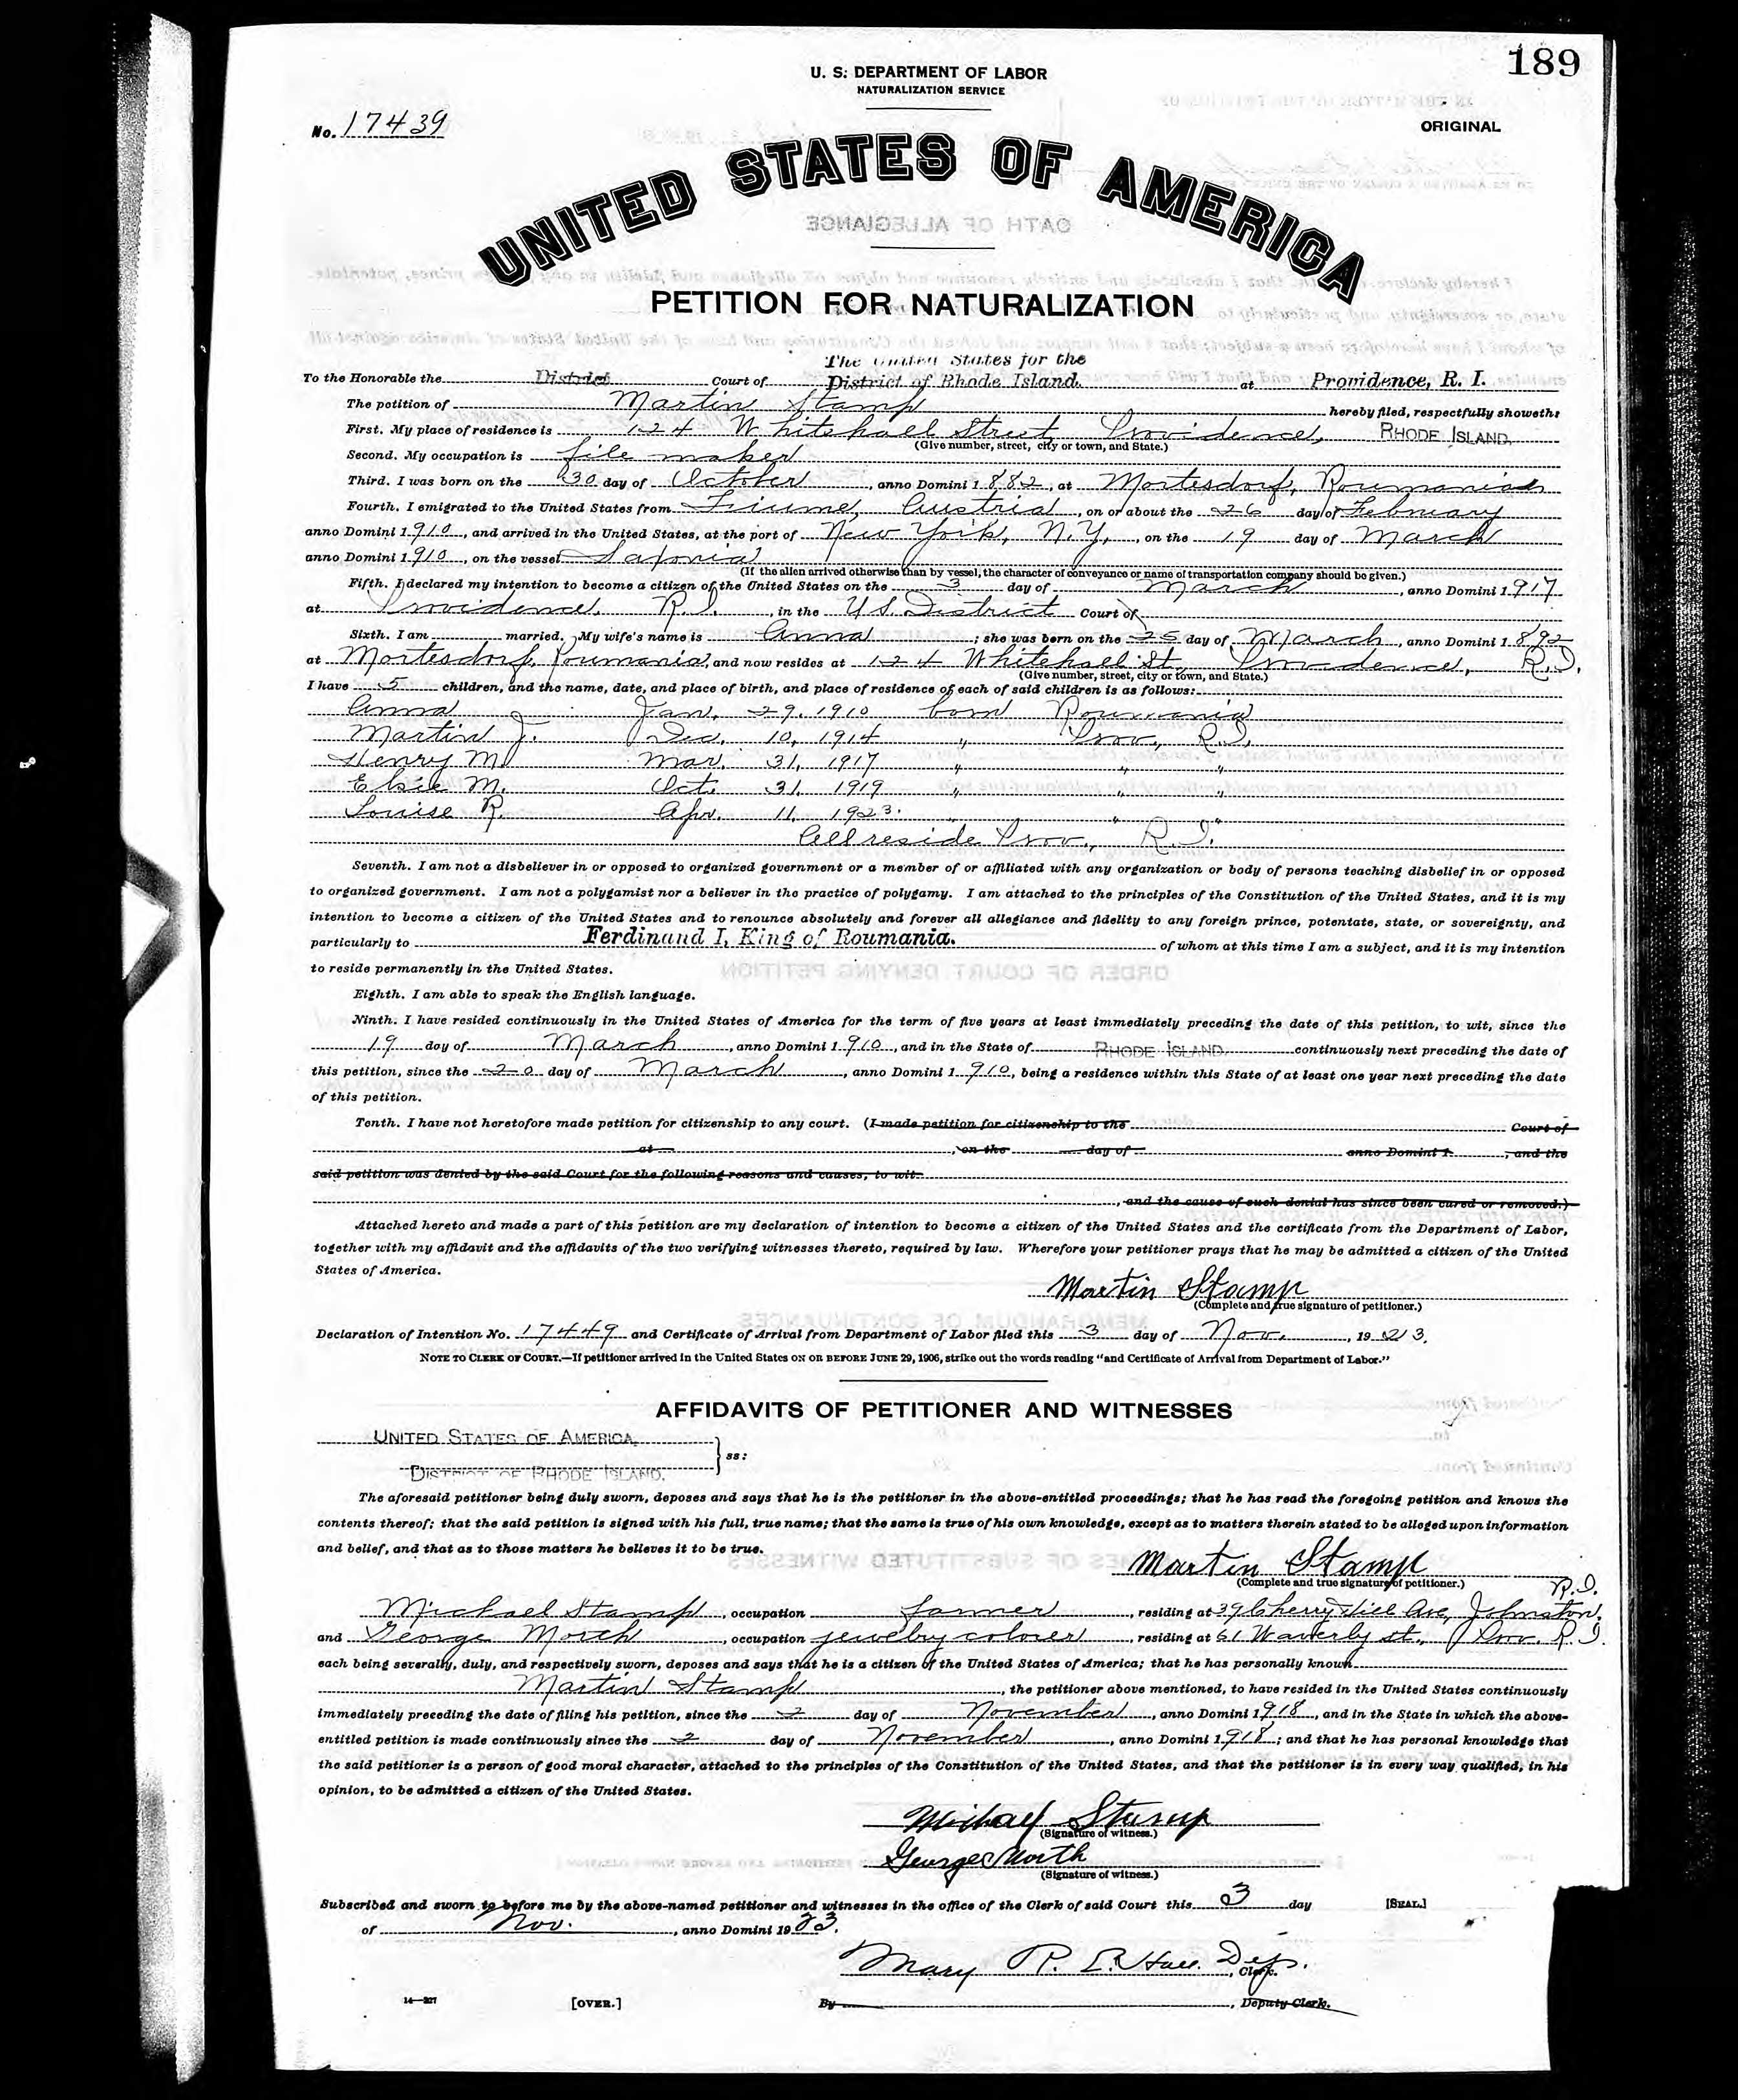 189
U. S. DEPARTMENT OF LABOR
NATURALIZATION SERVICE
No. 17439
ORIGINAL
UNITED STATES OF AMERICA
PETITION FOR NATURALIZATION
The United States for the
To the Honorable the District Court of District of Rhode Island. at Providence, R. I.
The petition of Martin Stamp hereby filed, respectfully showeth:
First. My place of residence is 124 Whitehall Street, Providence, RHODE ISLAND.
(Give number, street, city or town, and State.)
Second. My occupation is file maker
Third. I was born on the 30 day of October, anno Domini 1882, at Mortesdorf, Roumania
Fourth. I emigrated to the United States from Fiume, Austria, on or about the 26 day of February
anno Domini 1910, and arrived in the United States, at the port of New York, N.Y., on the 19 day of March
anno Domini 1910, on the vessel Saxonia
(If the alien arrived otherwise than by vessel, the character of conveyance or name of transportation company should be given.)
Fifth. I declared my intention to become a citizen of the United States on the 3 day of March, anno Domini 1917
at Providence, R.I., in the U.S. District Court of
Sixth. I am married. My wife's name is Anna; she was born on the 25 day of March, anno Domini 1892
at Mortesdorf, Roumania, and now resides at 124 Whitehall St., Providence, R.I.
(Give number, street, city or town, and State.)
I have 5 children, and the name, date, and place of birth, and place of residence of each of said children is as follows:
Anna Jan. 29, 1910 born Roumania
Martin J. Dec. 10, 1914 " Prov., R.I.
Henry M. Mar. 31, 1917 " " "
Elsie M. Oct. 31, 1919 " " "
Louise R. Apr. 11, 1923. " " "
All reside Prov., R.I.
Seventh. I am not a disbeliever in or opposed to organized government or a member of or affiliated with any organization or body of persons teaching disbelief in or opposed
to organized government. I am not a polygamist nor a believer in the practice of polygamy. I am attached to the principles of the Constitution of the United States, and it is my
intention to become a citizen of the United States and to renounce absolutely and forever all allegiance and fidelity to any foreign prince, potentate, state, or sovereignty, and
particularly to Ferdinand I, King of Roumania. of whom at this time I am a subject, and it is my intention
to reside permanently in the United States.
Eighth. I am able to speak the English language.
Ninth. I have resided continuously in the United States of America for the term of five years at least immediately preceding the date of this petition, to wit, since the
19 day of March, anno Domini 1910, and in the State of RHODE ISLAND continuously next preceding the date of
this petition, since the 20 day of March, anno Domini 1910, being a residence within this State of at least one year next preceding the date
of this petition.
Tenth. I have not heretofore made petition for citizenship to any court. (I made petition for citizenship to the Court of
at , on the day of anno Domini 1 , and the
said petition was denied by the said Court for the following reasons and causes, to wit:
, and the cause of such denial has since been cured or removed.)
Attached hereto and made a part of this petition are my declaration of intention to become a citizen of the United States and the certificate from the Department of Labor,
together with my affidavit and the affidavits of the two verifying witnesses thereto, required by law. Wherefore your petitioner prays that he may be admitted a citizen of the United
States of America.
Martin Stamp
(Complete and true signature of petitioner.)
Declaration of Intention No. 17449 and Certificate of Arrival from Department of Labor filed this 3 day of Nov., 1923.
NOTE TO CLERK OF COURT.—If petitioner arrived in the United States ON OR BEFORE JUNE 29, 1906, strike out the words reading "and Certificate of Arrival from Department of Labor."
AFFIDAVITS OF PETITIONER AND WITNESSES
UNITED STATES OF AMERICA
DISTRICT OF RHODE ISLAND. ss:
The aforesaid petitioner being duly sworn, deposes and says that he is the petitioner in the above-entitled proceedings; that he has read the foregoing petition and knows the
contents thereof; that the said petition is signed with his full, true name; that the same is true of his own knowledge, except as to matters therein stated to be alleged upon information
and belief, and that as to those matters he believes it to be true.
Martin Stamp
(Complete and true signature of petitioner.)
R.I.
Michael Stamp, occupation farmer, residing at 39 Cherry Hill Ave, Johnston,
and George Morth, occupation jewelry colorer, residing at 61 Waverly st., Prov. R.I.
each being severally, duly, and respectively sworn, deposes and says that he is a citizen of the United States of America; that he has personally known
Martin Stamp, the petitioner above mentioned, to have resided in the United States continuously
immediately preceding the date of filing his petition, since the 2 day of November, anno Domini 1918, and in the State in which the above-
entitled petition is made continuously since the 2 day of November, anno Domini 1918; and that he has personal knowledge that
the said petitioner is a person of good moral character, attached to the principles of the Constitution of the United States, and that the petitioner is in every way qualified, in his
opinion, to be admitted a citizen of the United States.
Michael Stamp
(Signature of witness.)
George Morth
(Signature of witness.)
Subscribed and sworn to before me by the above-named petitioner and witnesses in the office of the Clerk of said Court this 3 day [SEAL.]
of Nov., anno Domini 1923.
Mary R. L. Hall Dep. , Clerk.
14—327 [OVER.] By , Deputy Clerk.